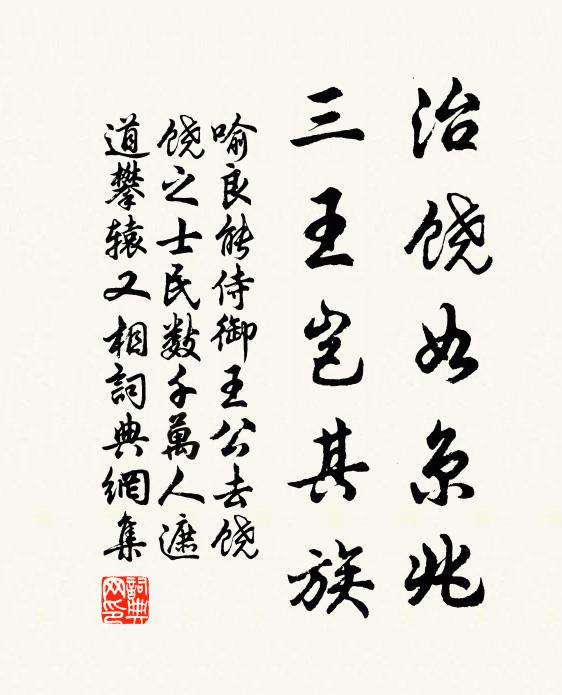 治饶如京兆
三王岂其族
喻良能侍御王公去饶
饶之士民数千萬人遮
道攀辕又相詞典網集
詞典网印